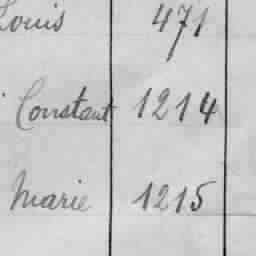 Louis 471
Constant 1214
Marie 1215